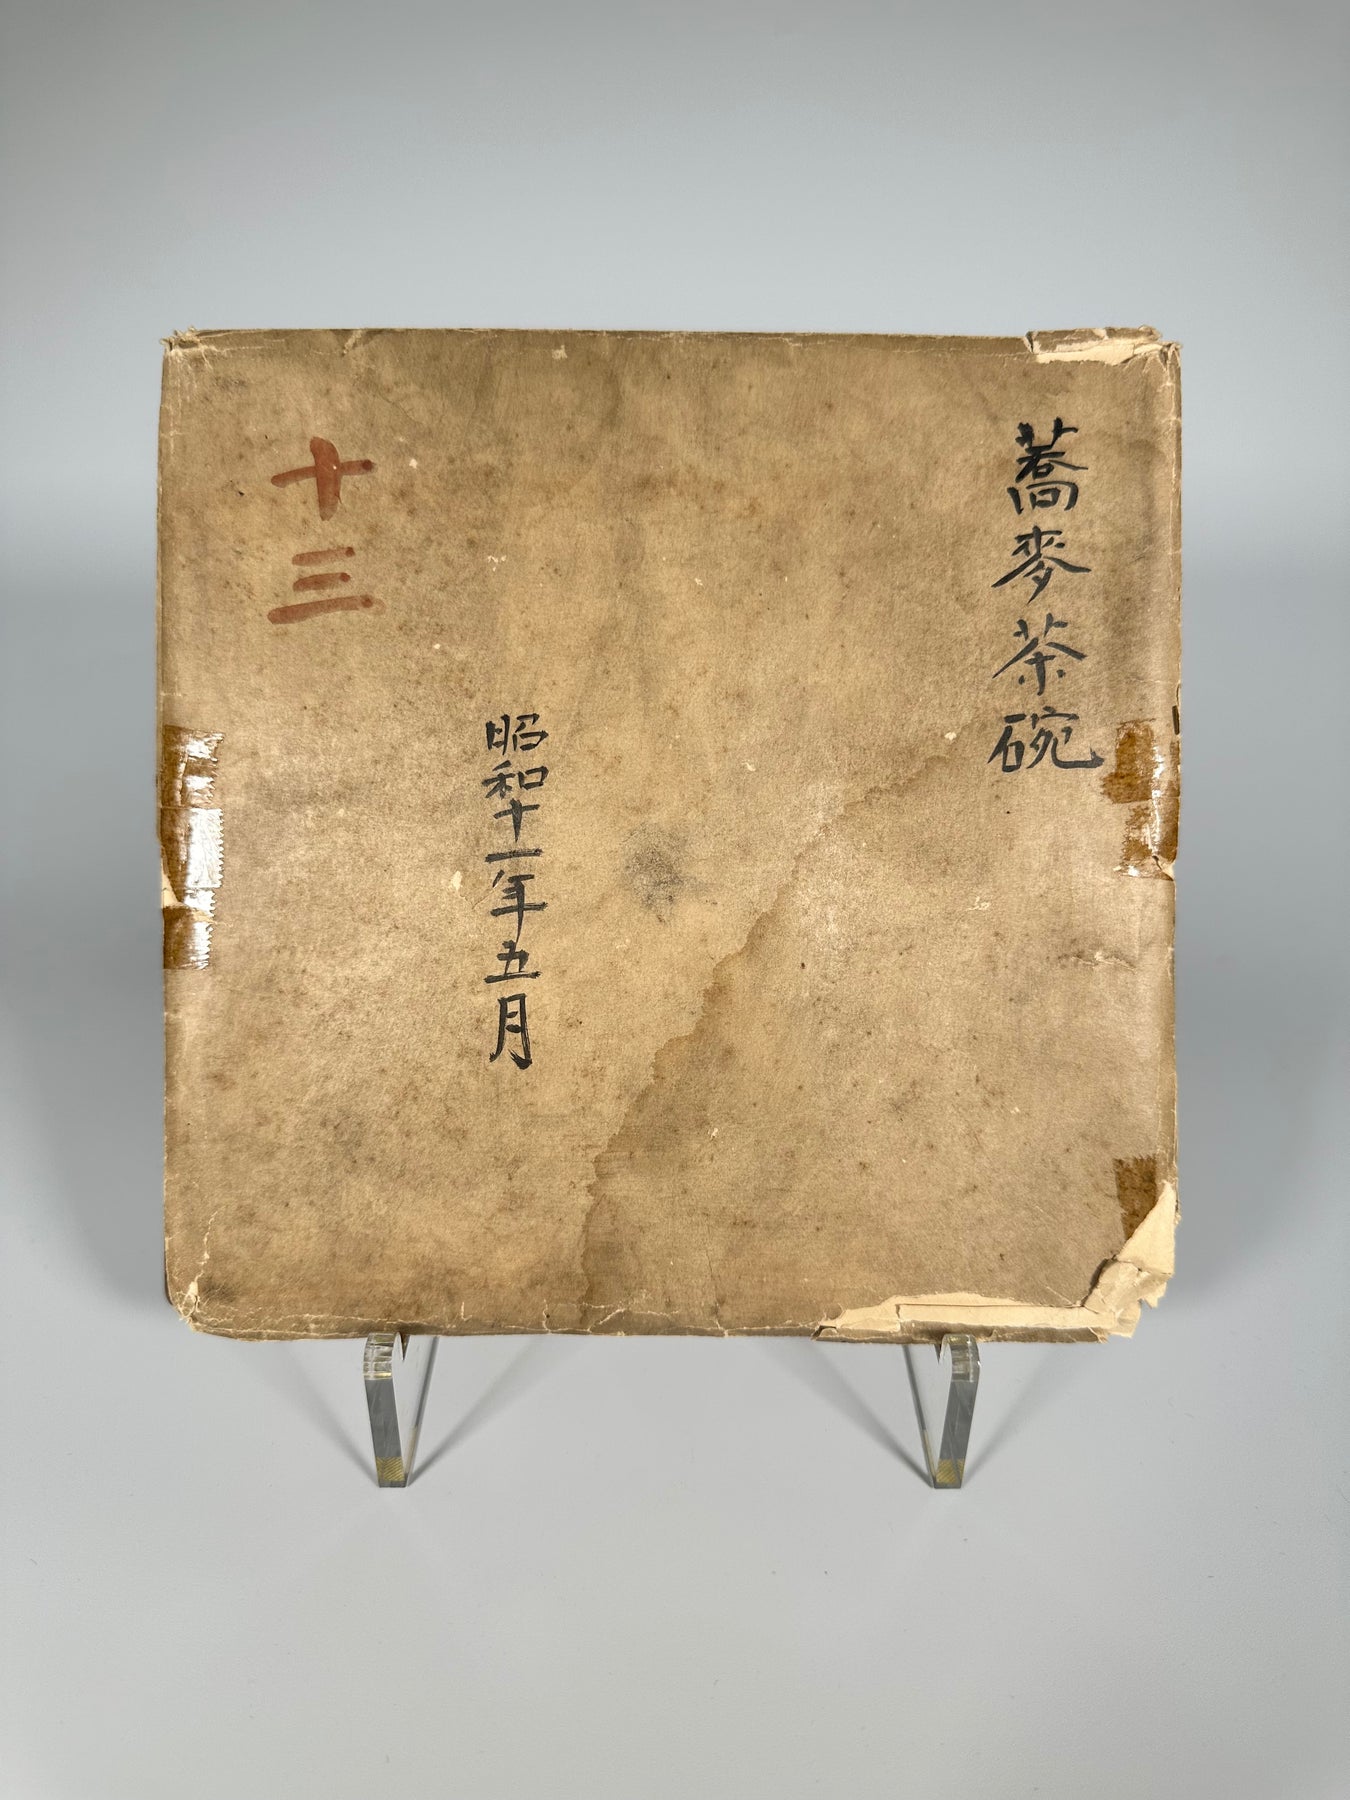 蕎麥茶碗
昭和十一年五月
十三